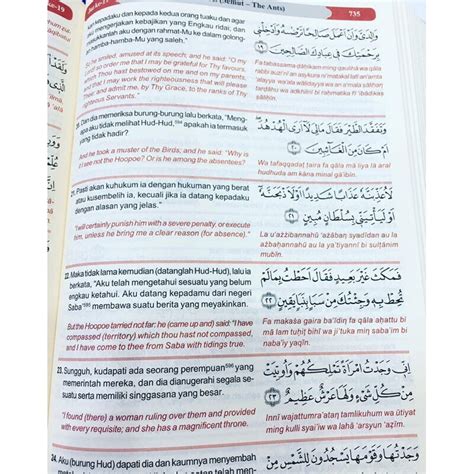 (Semut – The Ants)
735
kepadaku dan kepada kedua orang tuaku dan agar
aku mengerjakan kebajikan yang Engkau ridai, dan
masukkanlah aku dengan rahmat-Mu ke dalam golong-
an hamba-hamba-Mu yang saleh.
So he smiled, amused at its speech; and he said: "O my
Lord! so order me that I may be grateful for Thy favours,
which Thou hast bestowed on me and on my parents,
and that I may work the righteousness that will please
Thee: and admit me, by Thy Grace, to the ranks of Thy
righteous Servants."
وَٰلِدَيَّ وَأَنْ أَعْمَلَ صَٰلِحًا تَرْضَىٰهُ وَأَدْخِلْنِي
بِرَحْمَتِكَ فِي عِبَادِكَ الصَّٰلِحِينَ ١٩
20. Dan dia memeriksa burung-burung lalu berkata, "Meng-
apa aku tidak melihat Hud-Hud, apakah ia termasuk
yang tidak hadir?
And he took a muster of the Birds; and he said: "Why is
it I see not the Hoopoe? Or is he among the absentees?
وَتَفَقَّدَ الطَّيْرَ فَقَالَ مَالِيَ لَآ أَرَى الْهُدْهُدَ
أَمْ كَانَ مِنَ الْغَآئِبِينَ ٢٠
Wa tafaqqadaṭ ṭaira fa qāla mā liya lā aral
hudhuda am kāna minal gā'ibīn(a).
21. Pasti akan kuhukum ia dengan hukuman yang berat
atau kusembelih ia, kecuali jika ia datang kepadaku
dengan alasan yang jelas."
"I will certainly punish him with a severe penalty, or execute
him, unless he bring me a clear reason (for absence)."
لَأُعَذِّبَنَّهُ عَذَابًا شَدِيدًا أَوْ لَأَاذْبَحَنَّهُ
أَوْ لَيَأْتِيَنِّي بِسُلْطَٰنٍ مُّبِينٍ ٢١
La u'ażżibannahū 'ażāban syadīdan au la
ażbaḥannahū au la ya'tiyannī bi sulṭānim
mubīn(in).
22. Maka tidak lama kemudian (datanglah Hud-Hud), lalu ia
berkata, "Aku telah mengetahui sesuatu yang belum
engkau ketahui. Aku datang kepadamu dari negeri
Saba' membawa suatu berita yang meyakinkan.
But the Hoopoe tarried not far: he (came up and) said: "I have
compassed (territory) which thou hast not compassed,
and I have come to thee from Saba with tidings true.
فَمَكَثَ غَيْرَ بَعِيدٍ فَقَالَ أَحَطْتُ بِمَا لَمْ
تُحِطْ بِهِ وَجِئْتُكَ مِنْ سَبَإٍ بِنَبَإٍ يَقِينٍ ٢٢
Fa makaṡa gaira ba'īdin fa qāla aḥaṭtu bi
mā lam tuḥiṭ bihī wa ji'tuka min saba'im bi
naba'iy yaqīn.
23. Sungguh, kudapati ada seorang perempuan yang
memerintah mereka, dan dia dianugerahi segala se-
suatu serta memiliki singgasana yang besar.
"I found (there) a woman ruling over them and provided
with every requisite; and she has a magnificent throne.
إِنِّي وَجَدْتُ امْرَأَةً تَمْلِكُهُمْ وَأُوتِيَتْ
مِنْ كُلِّ شَيْءٍ وَلَهَا عَرْشٌ عَظِيمٌ ٢٣
Innī wajattumra'atan tamlikuhum wa ūtiyat
min kulli syai'iw wa lahā 'arsyun 'aẓīm(un).
24. Aku (burung Hud) dapati dia dan kaumnya menyembah
وَجَدْتُهَا وَقَوْمَهَا يَسْجُدُونَ لِلشَّمْسِ مِنْ